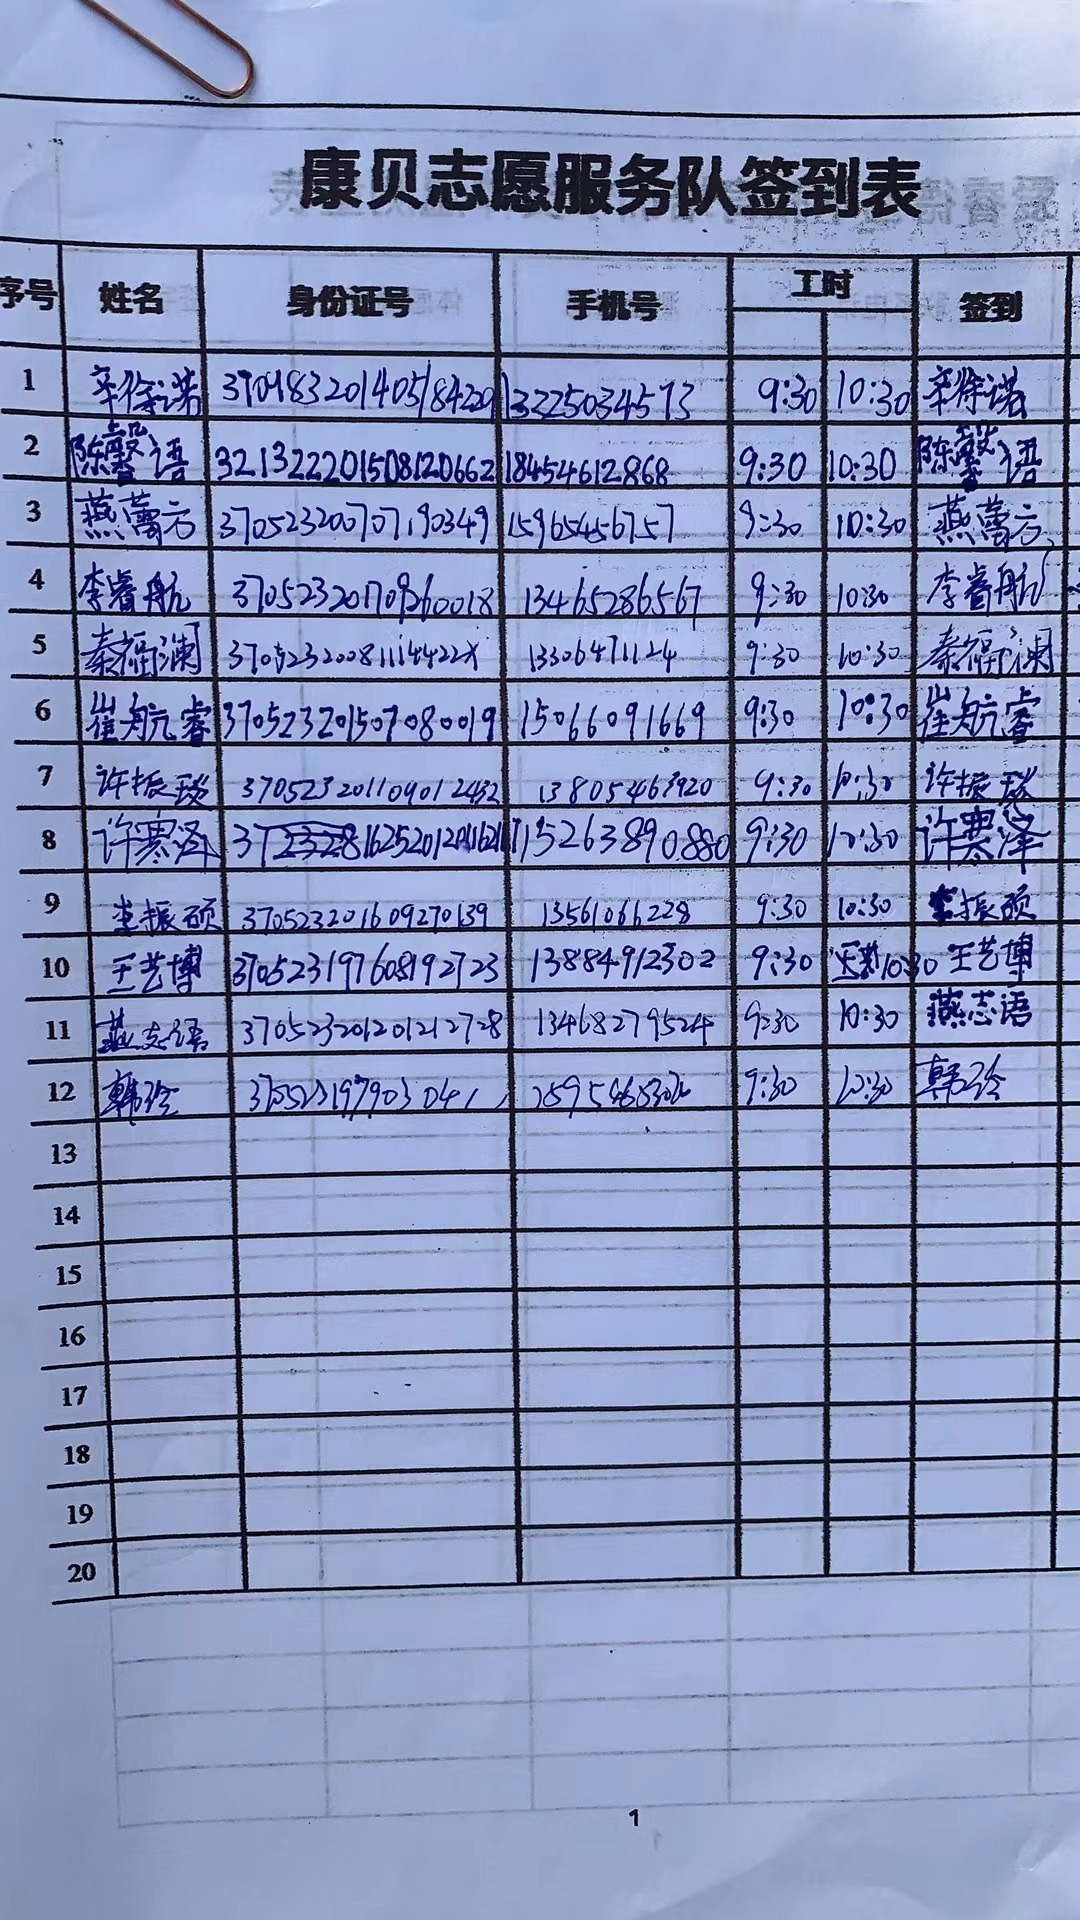 康贝志愿服务队签到表
序号 姓名 身份证号 手机号 工时 签到
1 辛徐诺 370983201405184229 13325034573 9:30 10:30 辛徐诺
2 陈馨语 321322201508120662 18454612868 9:30 10:30 陈馨语
3 370523200707190349 15965456757 9:30 10:30
4 李睿航 370523201709260018 13465286567 9:30 10:30 李睿航
5 秦福澜 37052320081114422X 13306471124 9:30 10:30 秦福澜
6 崔航睿 370523201507080019 15066091669 9:30 10:30 崔航睿
7 许振琰 370523201109012432 13805463920 9:30 10:30 许振琰
8 许寒泽 15263890880 9:30 10:30 许寒泽
9 李振硕 370523201609270139 13561066228 9:30 10:30 李振硕
10 王艺博 370523197608192723 13884912302 9:30 10:30 王艺博
11 燕志语 370523201201212728 13468279524 9:30 10:30 燕志语
12 韩玲 9:30 10:30 韩玲
13
14
15
16
17
18
19
20
1